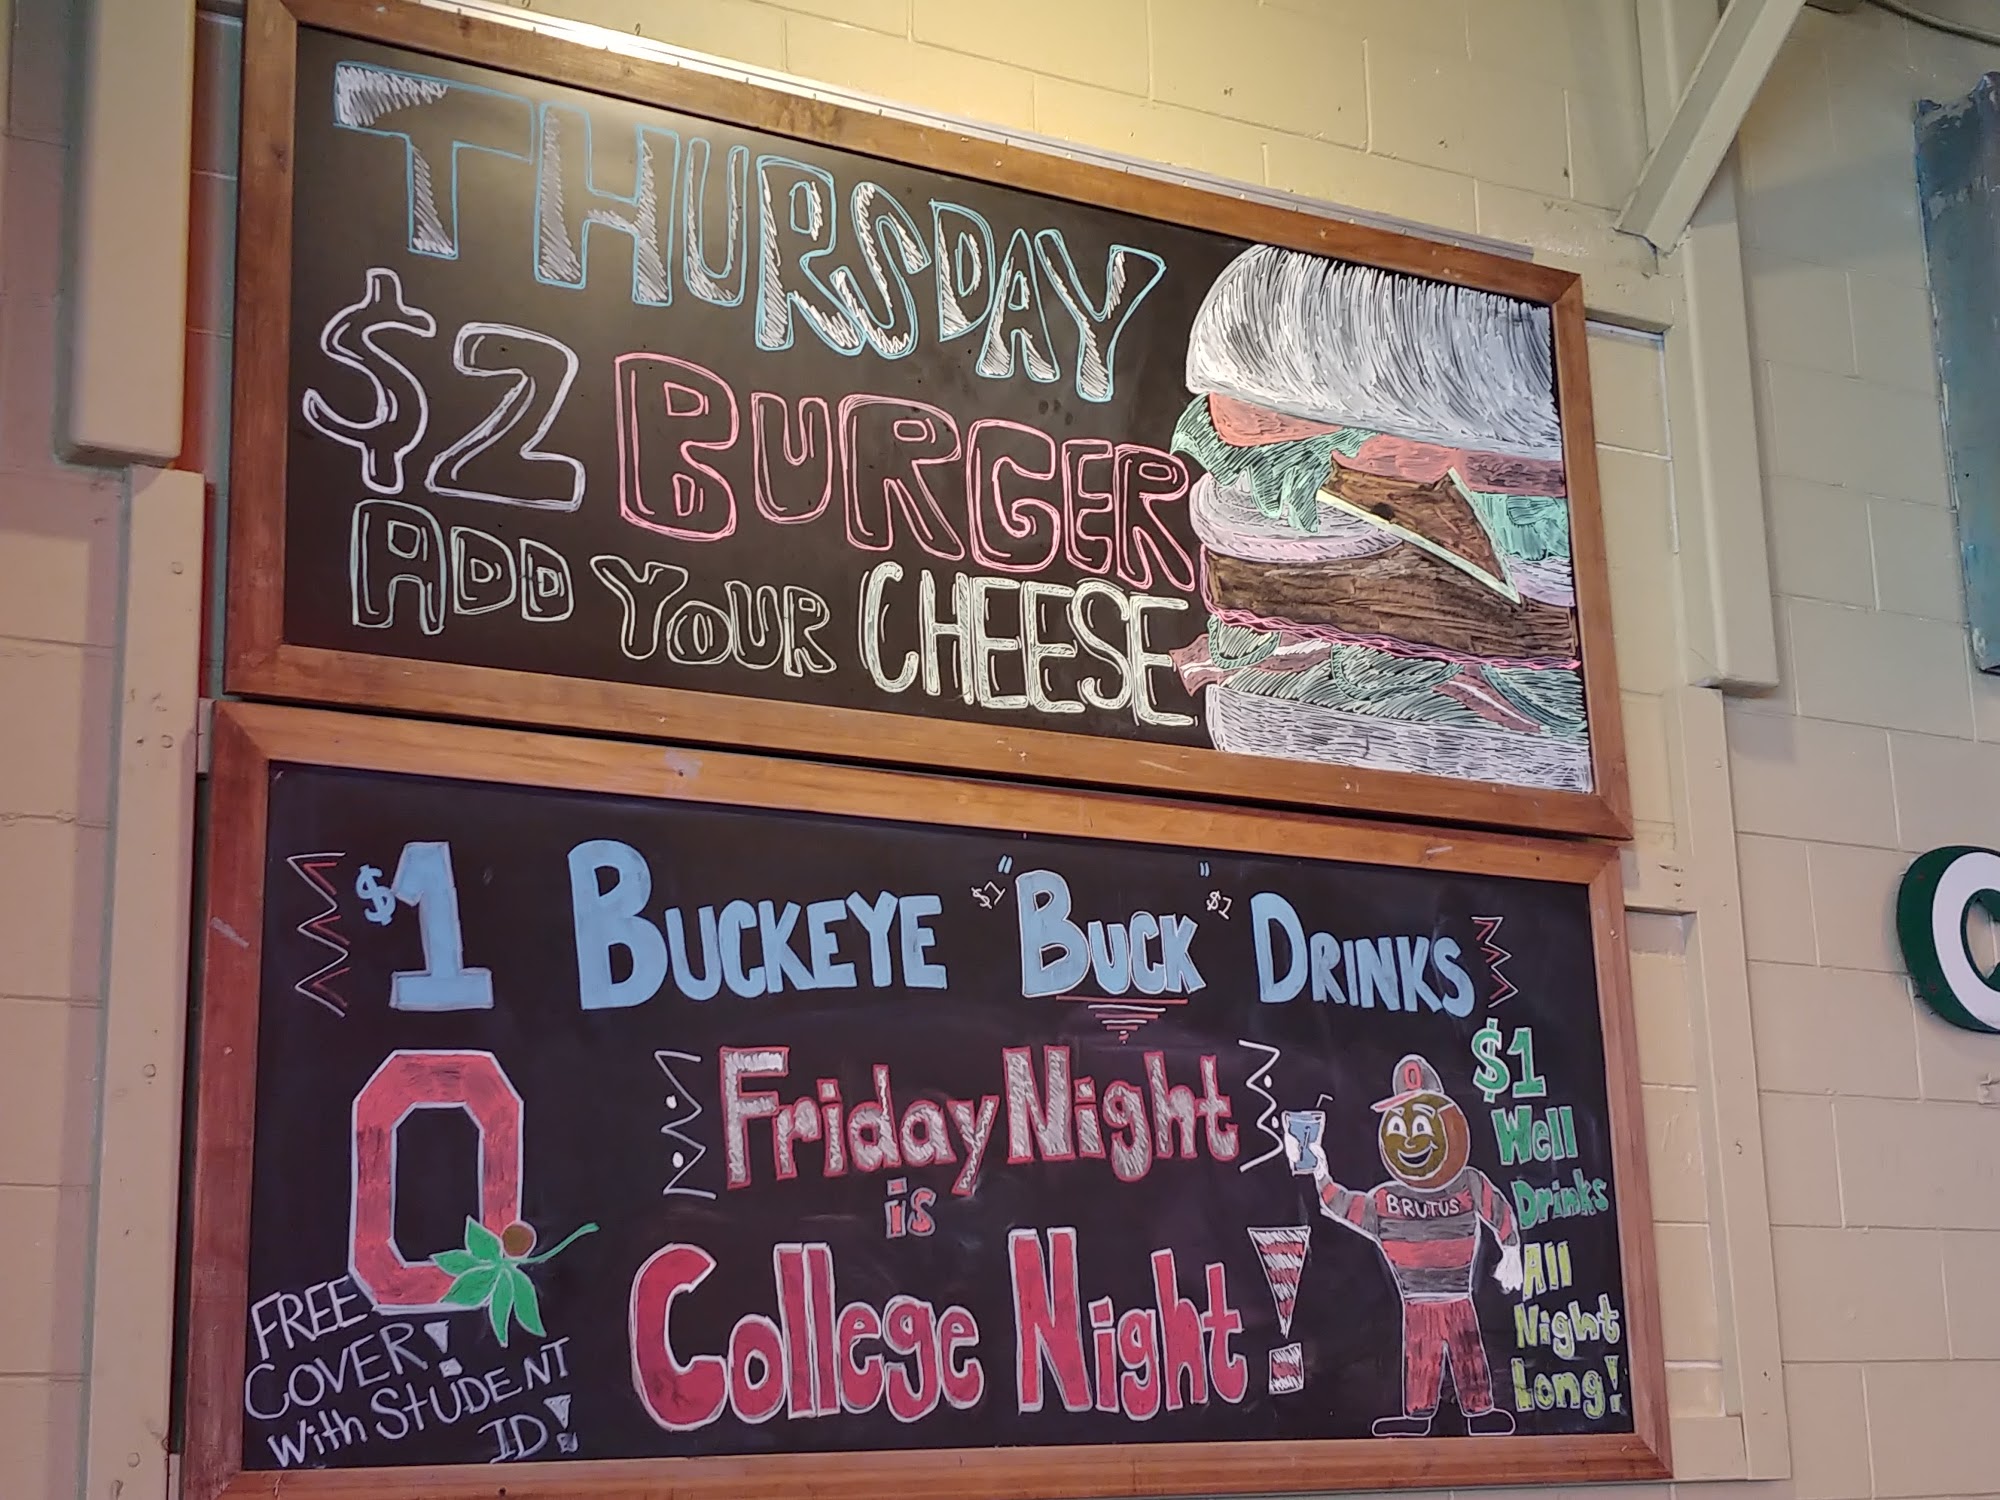 THURSDAY
$2 BURGER
ADD YOUR CHEESE
$1 BUCKEYE $1 "BUCK" $1 DRINKS
Friday Night
is
College Night!
O
FREE
COVER!
With STUDENT
ID!
O
1
BRUTUS
$1
Well
Drinks
All
Night
Long!
C